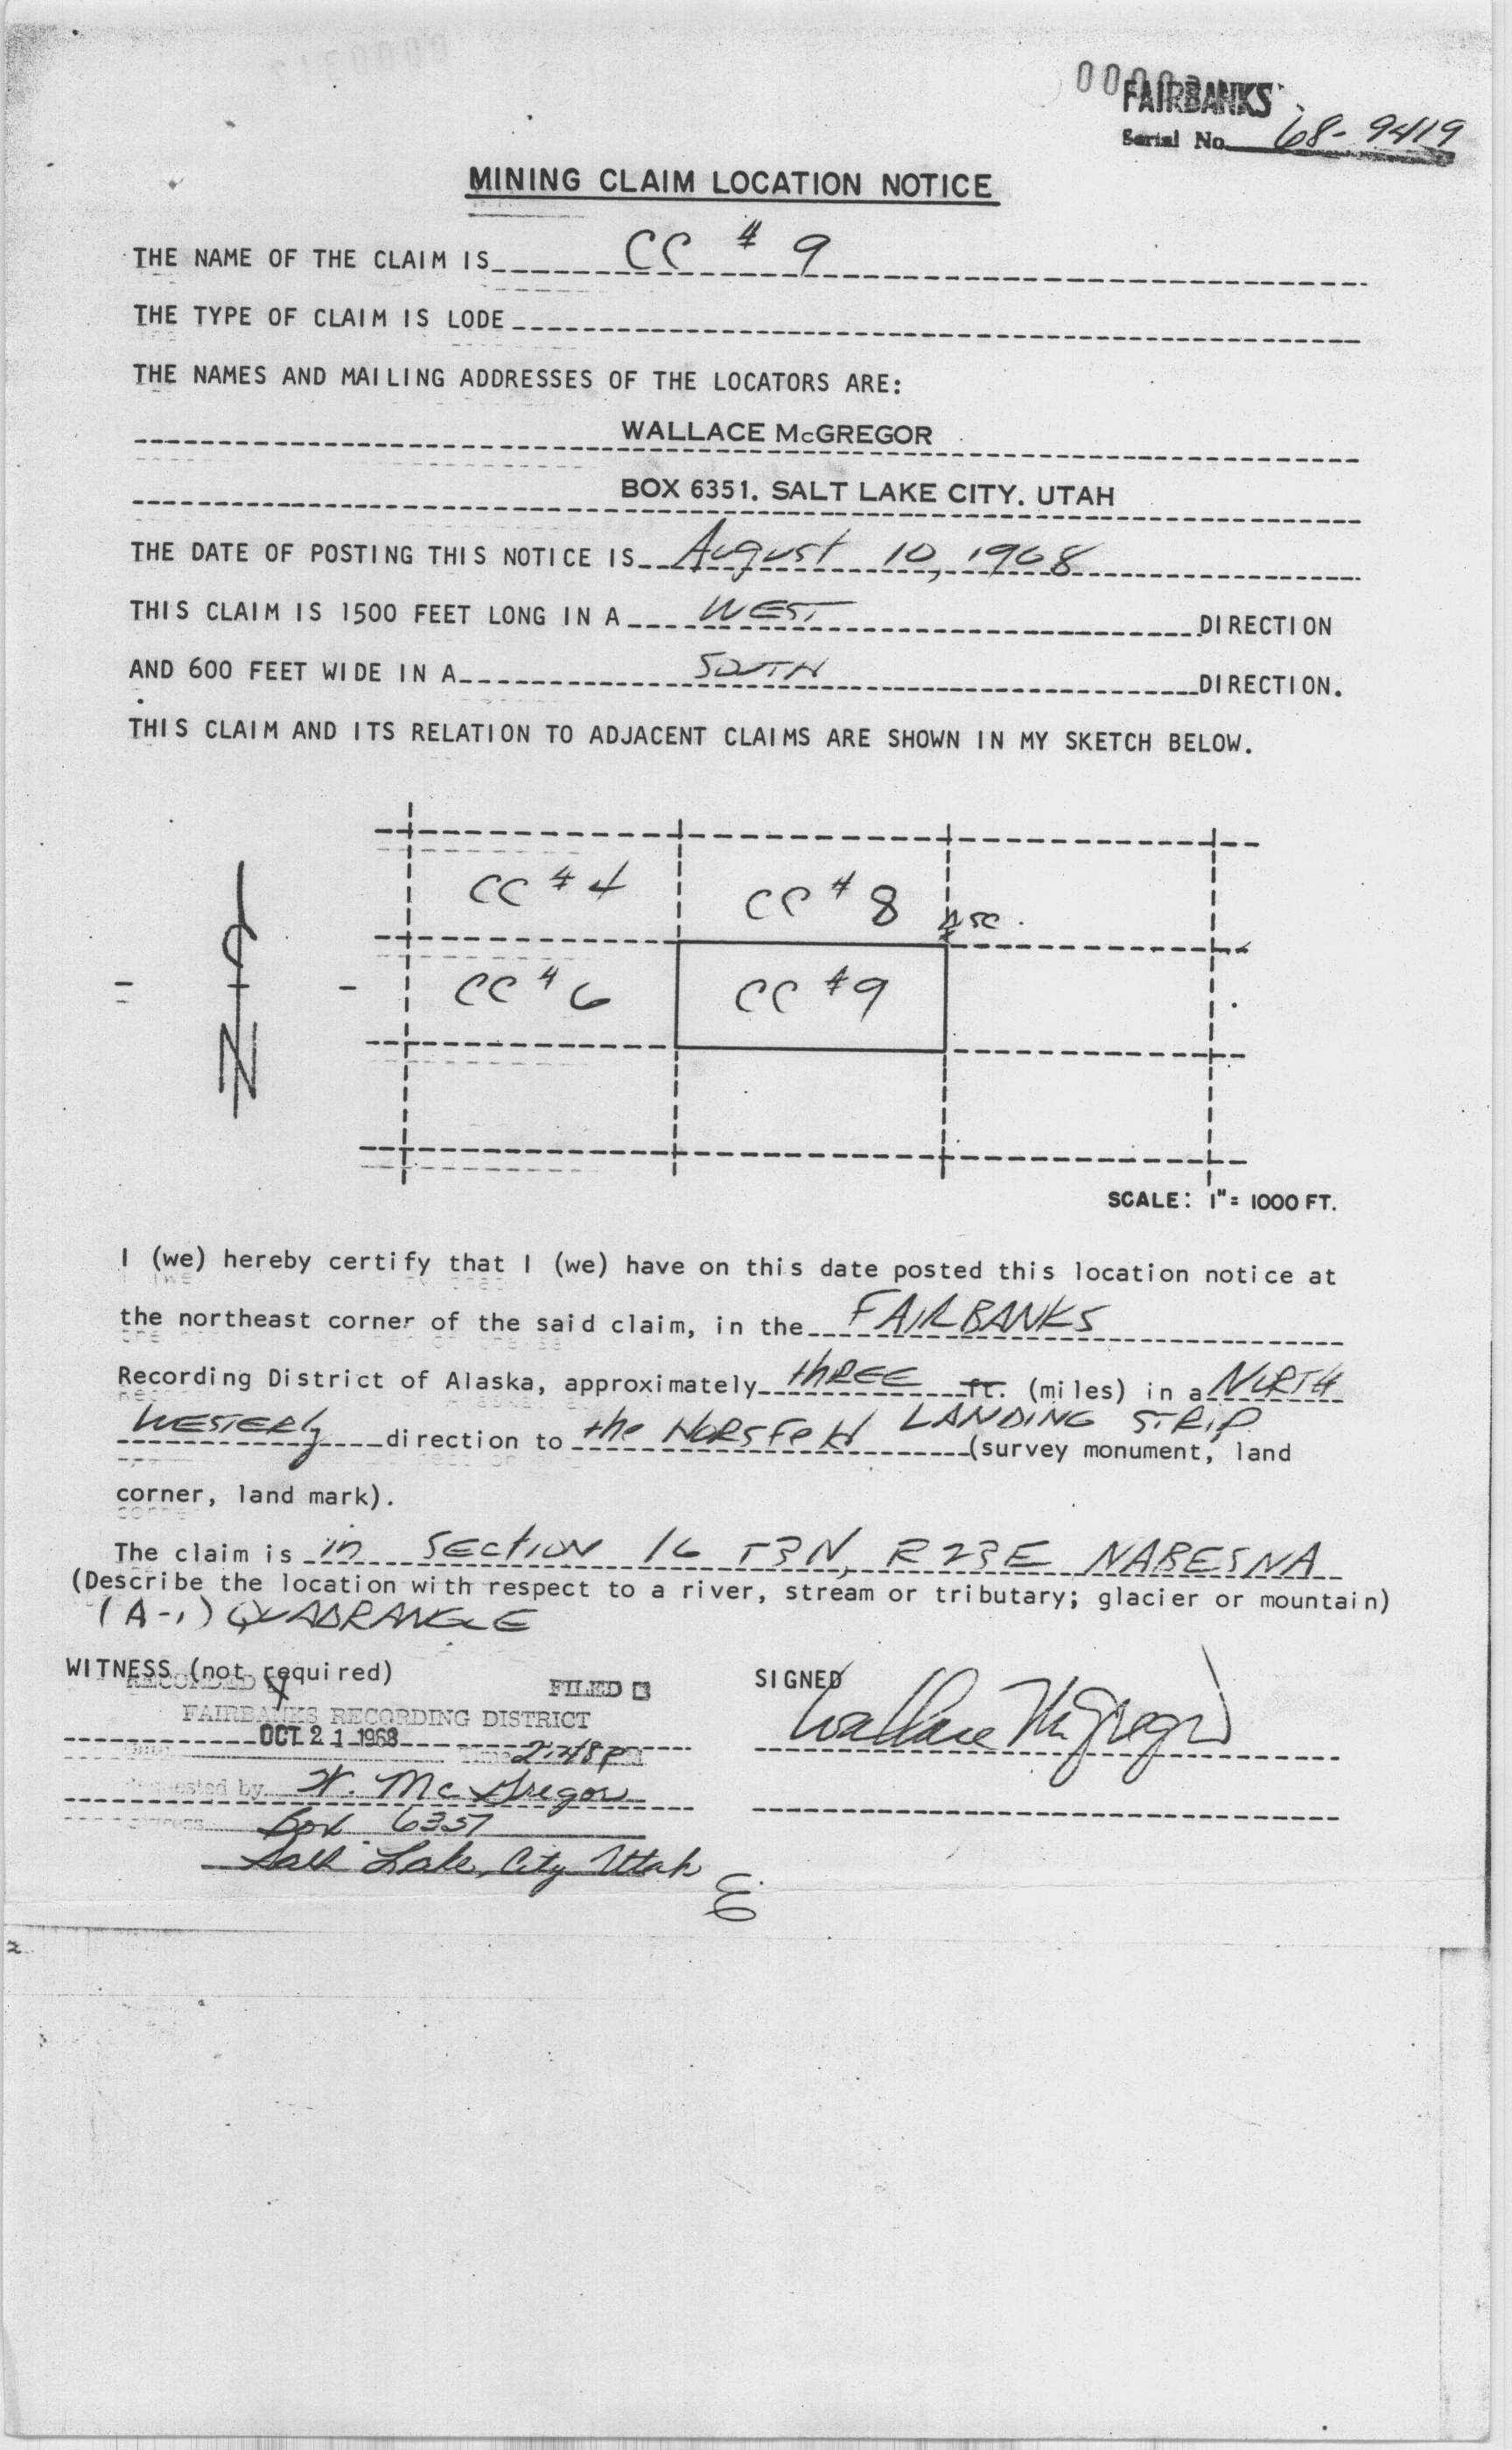 FAIRBANKS
Serial No. 68-9419
MINING CLAIM LOCATION NOTICE
THE NAME OF THE CLAIM IS CC # 9
THE TYPE OF CLAIM IS LODE
THE NAMES AND MAILING ADDRESSES OF THE LOCATORS ARE:
WALLACE McGREGOR
BOX 6351. SALT LAKE CITY. UTAH
THE DATE OF POSTING THIS NOTICE IS August 10, 1968
THIS CLAIM IS 1500 FEET LONG IN A WEST DIRECTION
AND 600 FEET WIDE IN A SOUTH DIRECTION.
THIS CLAIM AND ITS RELATION TO ADJACENT CLAIMS ARE SHOWN IN MY SKETCH BELOW.
CC # 4 CC # 8
CC # 6 CC # 9
N
SCALE: 1" = 1000 FT.
I (we) hereby certify that I (we) have on this date posted this location notice at
the northeast corner of the said claim, in the FAIRBANKS
Recording District of Alaska, approximately THREE ft. (miles) in a NORTH
WESTERLY direction to the HORSFELD LANDING STRIP (survey monument, land
corner, land mark).
The claim is in SECTION 16 T3N, R23E NABESNA
(Describe the location with respect to a river, stream or tributary; glacier or mountain)
(A-1) QUADRANGLE
WITNESS (not required) SIGNED
RECORDED FILED
FAIRBANKS RECORDING DISTRICT
OCT 21 1968 Wallace McGregor
Date Time 2:48 PM
Requested by W. McGregor
Box 6351
Salt Lake City Utah